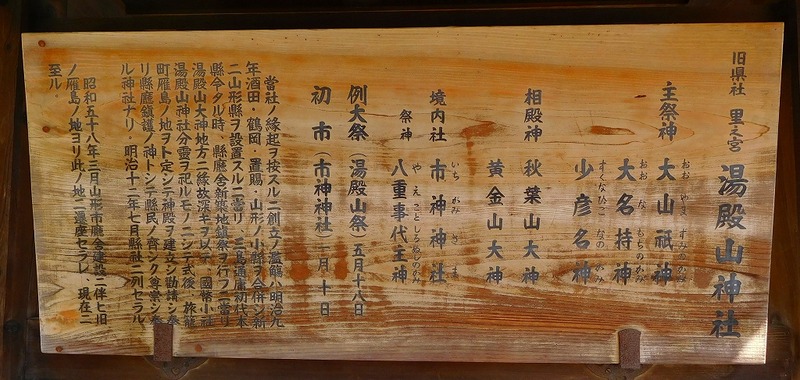 旧県社 里之宮
湯殿山神社
主祭神 大山祇神
おお やま すみのかみ
大名持神
おお な もちのかみ
少彦名神
すくなひこ なの かみ
相殿神 秋葉山大神
黄金山大神
境内社 市神神社
いち がみ さま
祭神 八重事代主神
やえ ことしろぬしのかみ
例大祭(湯殿山祭)五月十八日
初市(市神神社)一月十日
當社ノ縁起ヲ按スルニ創立ノ濫觴ハ明治九
年酒田・鶴岡・置賜・山形ノ小縣ヲ合併シ新
ニ山形縣ヲ設置スルニ當リ、三島通庸初代本
縣令タル時、縣廳舎新築地鎮祭ヲ行フニ當リ
湯殿山大神地方ニ縁故深キヲ以テ、國幣小社
湯殿山神社分霊ヲ祀ルモノニシテ式後、旅籠
町雁島ノ地ヲト定シテ神殿ヲ建立シ勧請シ奉
リ縣廳鎮護ノ神トシテ縣民ノ齊シク尊崇シ奉
ル神社ナリ、明治十二年七月縣社ニ列セラル
昭和五十八年三月山形市廳舎建設ニ伴ヒ旧
ノ雁島ノ地ヨリ此ノ地ニ遷座セラレ、現在ニ
至ル.